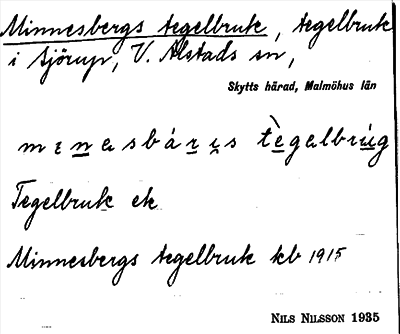 Minnesbergs tegelbruk, tegelbruk
i Sjörup, V. Alstads sn,
Skytts härad, Malmöhus län
mɪnasbárɪs tègalbrúg
Tegelbruk ek
Minnesbergs tegelbruk kb 1915
NILS NILSSON 1935